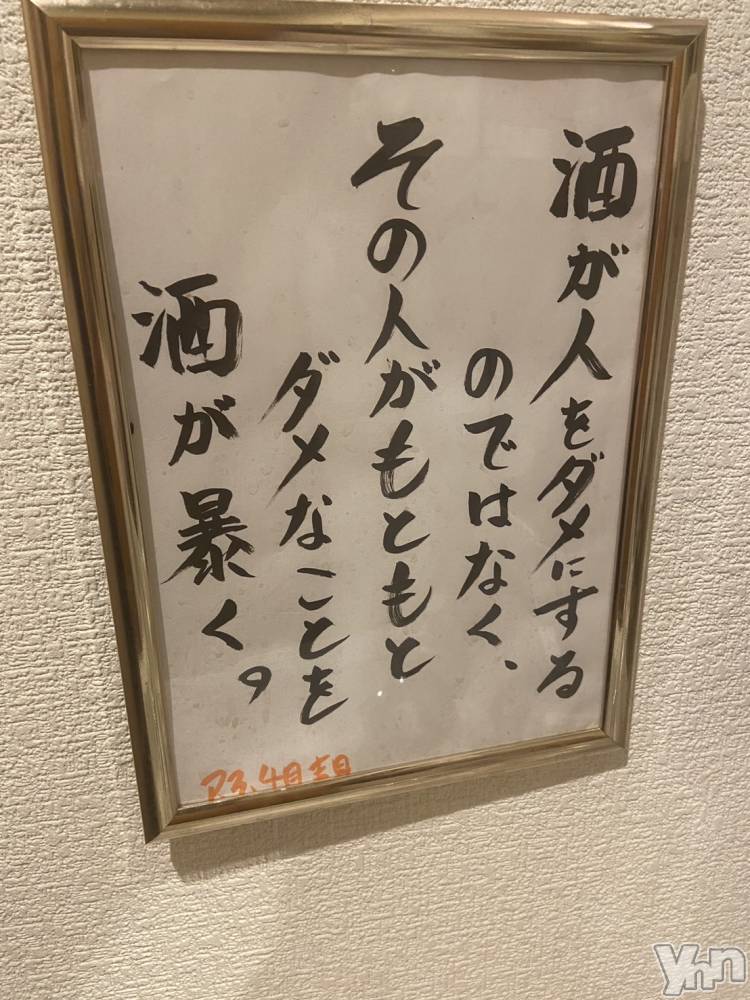 酒が人をダメにする
のではなく、
その人がもともと
ダメなことを
酒が暴く。
R3.4月吉日
yhn